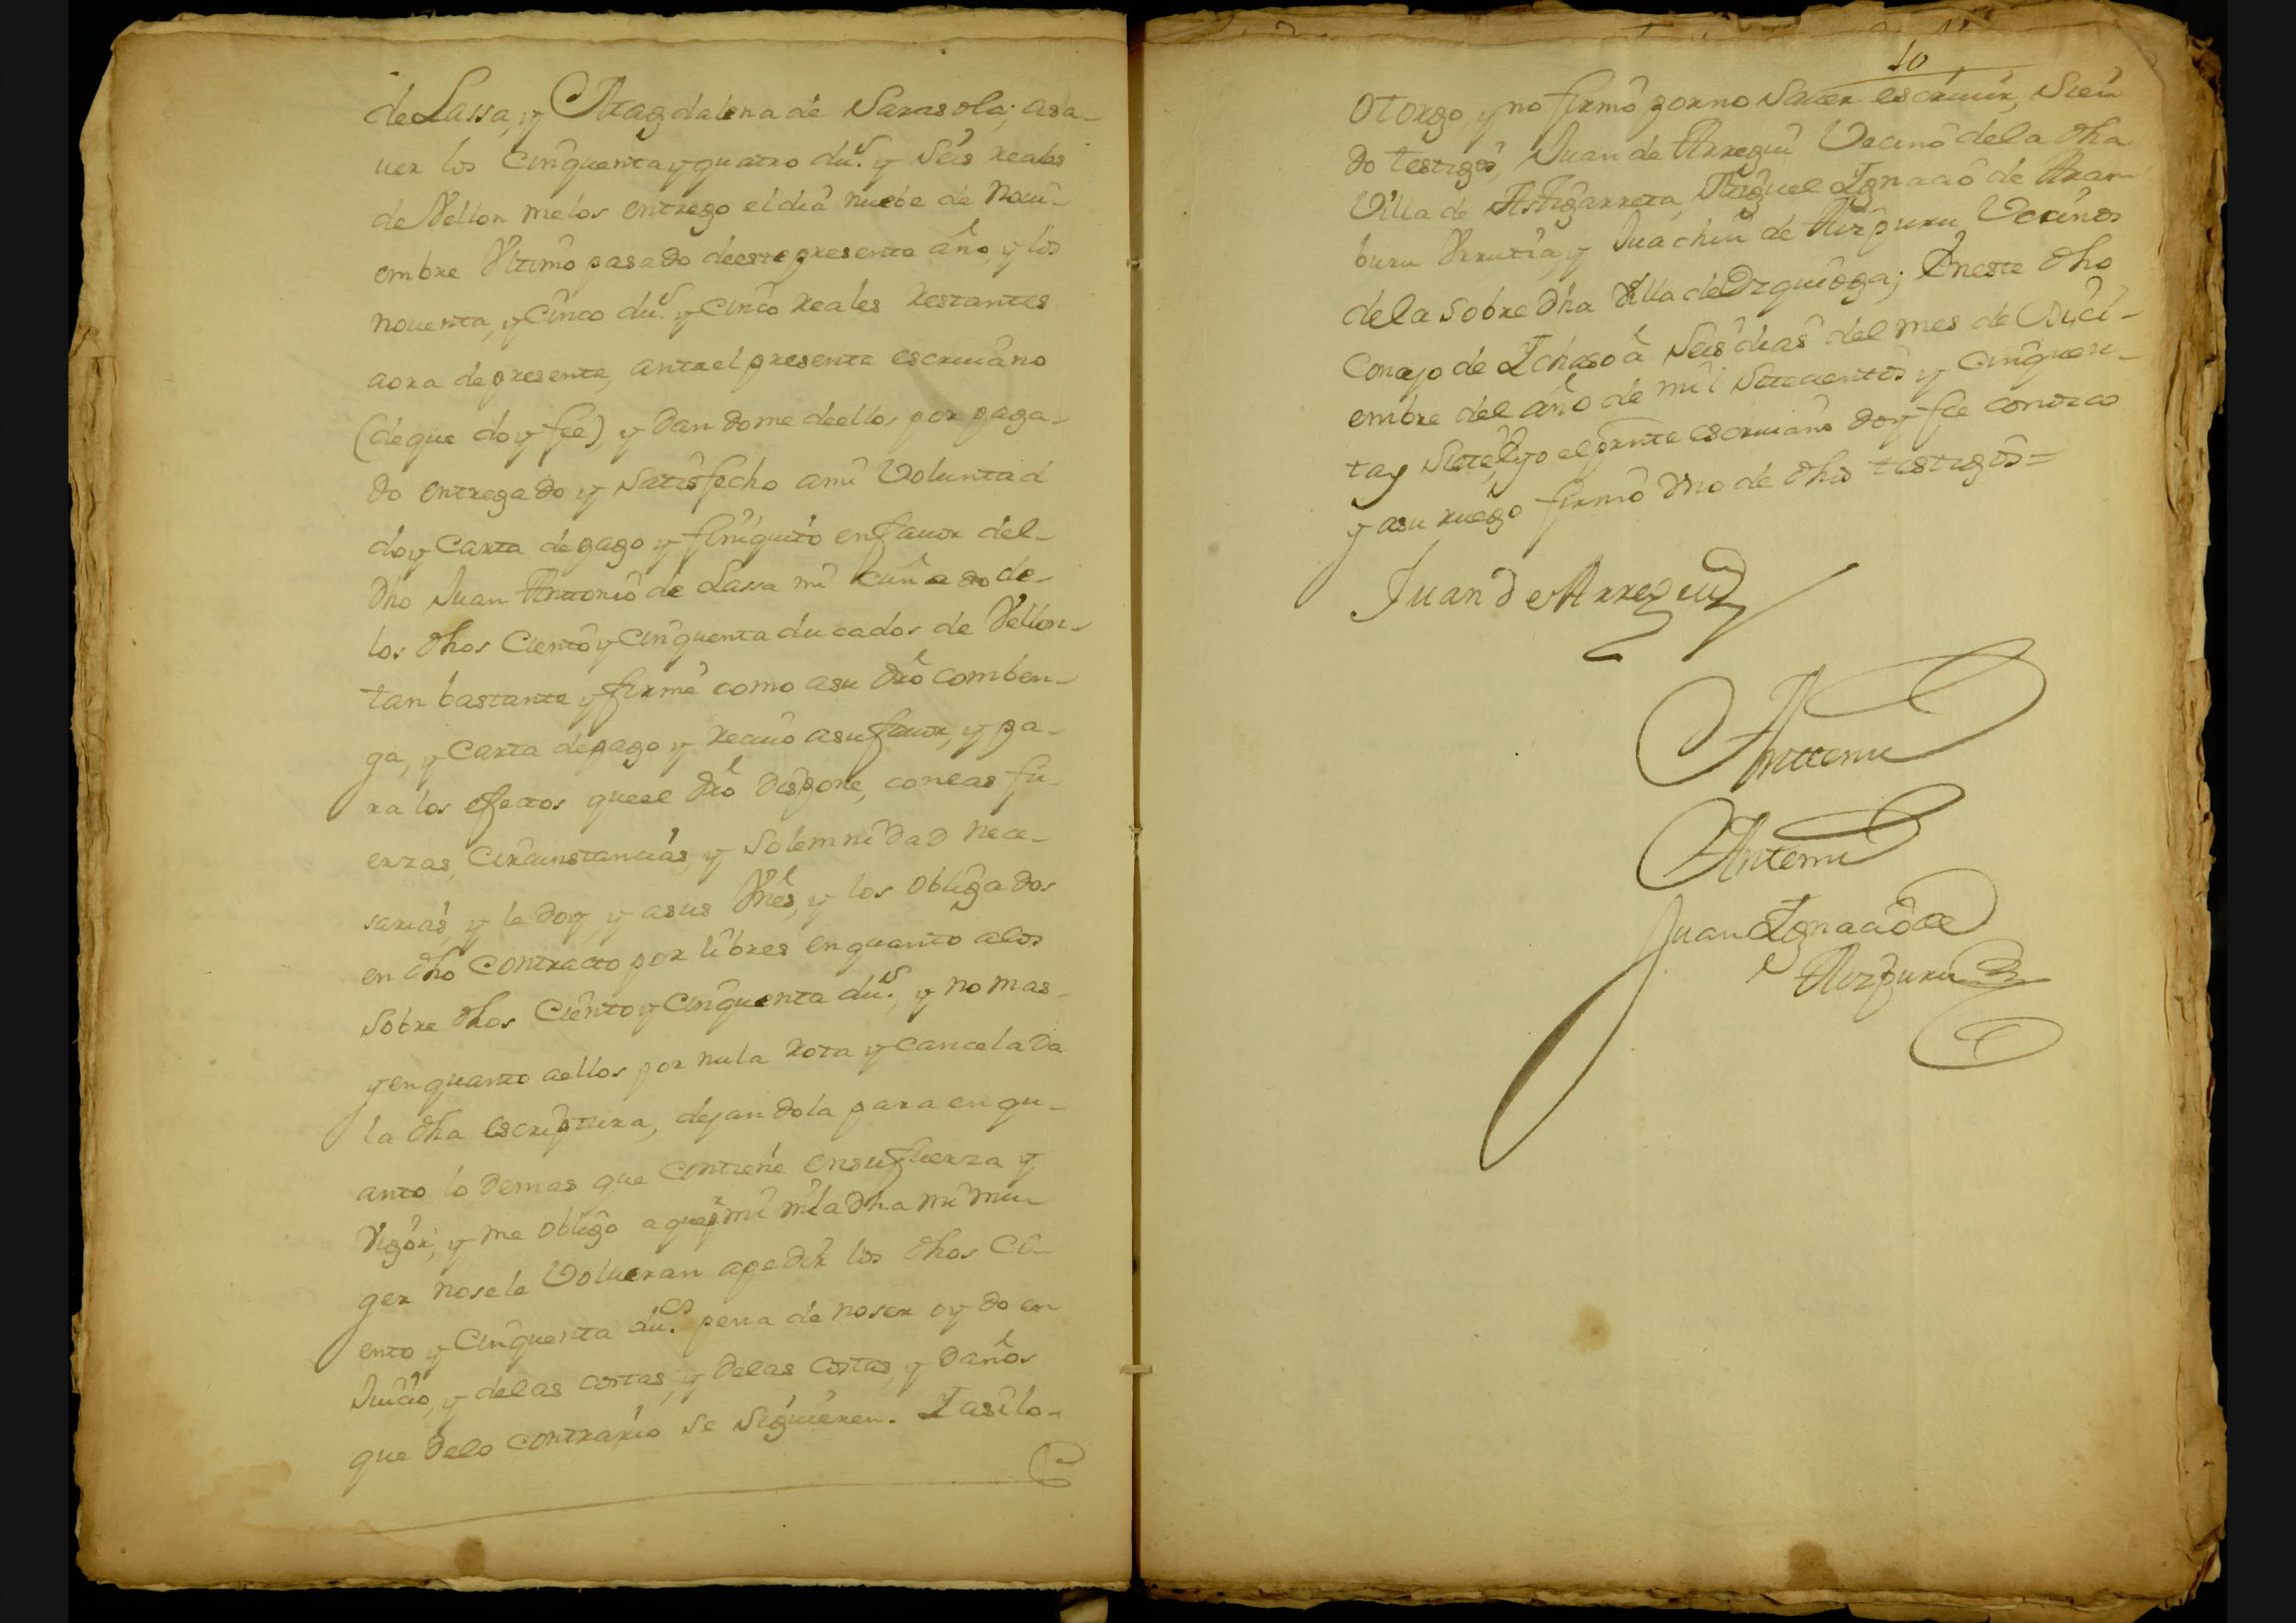 de Lassa, y Magdalena de Sarasola; asa-
uer los cinquenta y quatro du.s y seis reales
de Vellon me los entrego el dia nuebe de Noui-
embre Vltimo pasado de este presente año, y los
nouenta, y cinco du.s y cinco reales restantes
aora de presente, antrel presente escriuano
(de que doy fee), y dandome de ellos por paga-
do entregado y satisfecho a mi Voluntad
doy carta de pago y finiquito en fauor del-
dho Juan Antonio de Lassa mi cuñado de-
los dhos ciento y cinquenta ducados de Vellon-
tan bastante y firme como a su dro comben-
ga, y carta de pago y reciuo a su fauor, y pa-
ra los efectos que el dro dispone, con las fu-
erzas, circunstancias, y solemnidad nece-
sarias, y le doy, y a sus Vnes, y los obligados
en dho contracto por libres en quanto a los
sobre dhos ciento y cinquenta du.s, y no mas-
y en quanto a ellos por nula rota y cancelada
la dha escriptura, dejandola para en qu-
anto lo demas que contiene en su fuerza y
Vigor, y me obligo a que pr mi ni la dha mi mu-
ger no se le Volueran a pedir los dhos ci-
ento y cinquenta du.os pena de no ser oydo en
Juicio, y de las costas, y de las costas, y daños
que de lo contrario se siguieren. I asi lo-
10
otorgo y no firmo por no sauer escriuir, sien
do testigos, Juan de Arregui Vecino de la dha
Villa de Astigarreta, Miguel Ignacio de Aram
buru Vrrutia, y Juachin de Aizpuru Vecinos
de la sobre dha Villa de Ezquioga; En este dho
Concejo de Ichaso à seis dias del mes de Dici-
embre del año de mil setecientos y cinquen-
ta y siete, Eyo el prnte escriuano doy fee conozco
y a su ruego firmò Vno de dhos testigos=
Juan de Arregui
Antemi
Antemi
Juan Ignacio de
Aizpuru